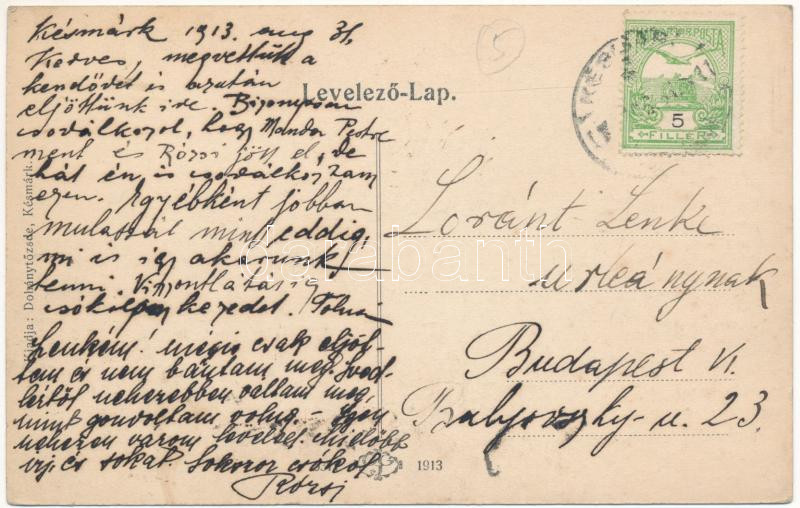 Késmárk 1913. aug 31.
Kedves, megvettük a
kendődet is azután
eljöttünk ide. Bizonyosan
csodálkozol, hogy Mandor Pestre
ment és Rózsi jött el, de
hát én is csodálkoztam
ezen. Egyébként jobban
mulassál mint eddig,
mi is így akarunk
tenni. Viszontlátásig
csókolom kezedet.
Lenkém! mégis csak eljöt-
tem és nem bántam meg.
nehezebben váltam meg,
mint gondoltam volna – Igen
nehezen várom leveledet mielőbb
írj és sokat. Sokszor csókol
Rózsi
Levelező-Lap.
MAGYAR KIR. POSTA
5
FILLÉR
Loránt Lenke
úrleánynak
Budapest VI.
23.
Kiadja: Dohánytőzsde, Késmárk.
1913
5
darabanth